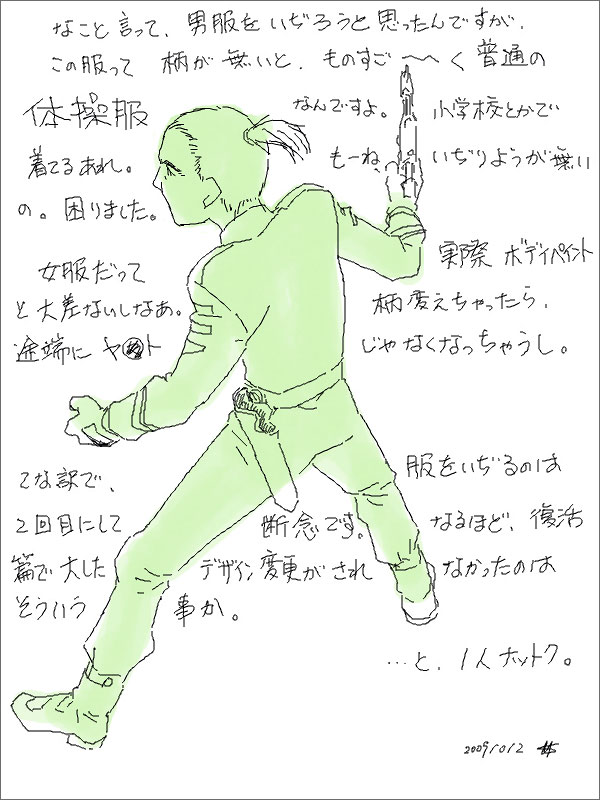 なこと言って、男服をいぢろうと思ったんですが、
この服って 柄が無いと、ものすご〜〜く普通の
体操服 なんですよ。小学校とかで
着てるあれ。 もーね、いぢりようが無い
の。困りました。
実際 ボディペイント
女服だって
と大差ないしなあ。 柄変えちゃったら、
途端にヤマト じゃなくなっちゃうし。
てな訳で、 服をいぢるのは
2回目にして 断念です。 なるほど、復活
篇で大した デザイン変更がされ なかったのは
そういう 事か。
…と、1人ナットク。
20091012